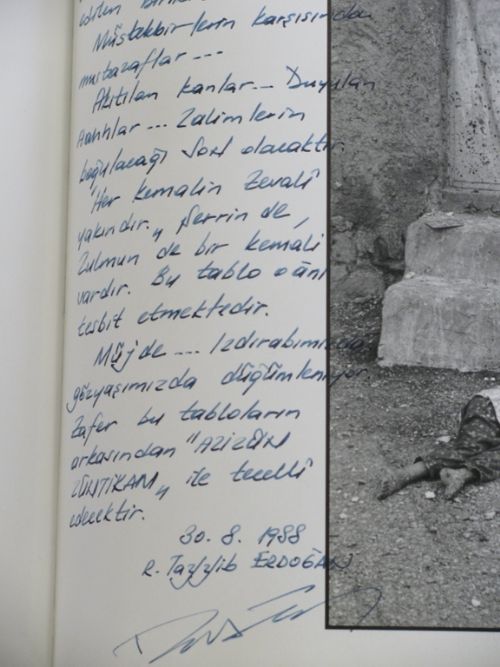 edilen
Müstekbirlerin karşısında
mustazaflar ---
Akıtılan kanlar -- Duyulan
Aahhlar --- Zalimlerin
boğulacağı son olacaktır.
"Her kemalin zevali
yakındır." Şerrin de,
Zulmün de bir kemali
vardır. Bu tablo o ânı
tesbit etmektedir.
Müjde --- Izdırabımızda
gözyaşımızda düğümleniyor
zafer bu tabloların
arkasından "AZİZÜN
ZÜNTİKAM" ile tecelli
edecektir.
30. 8. 1988
R. Tayyib ERDOĞAN